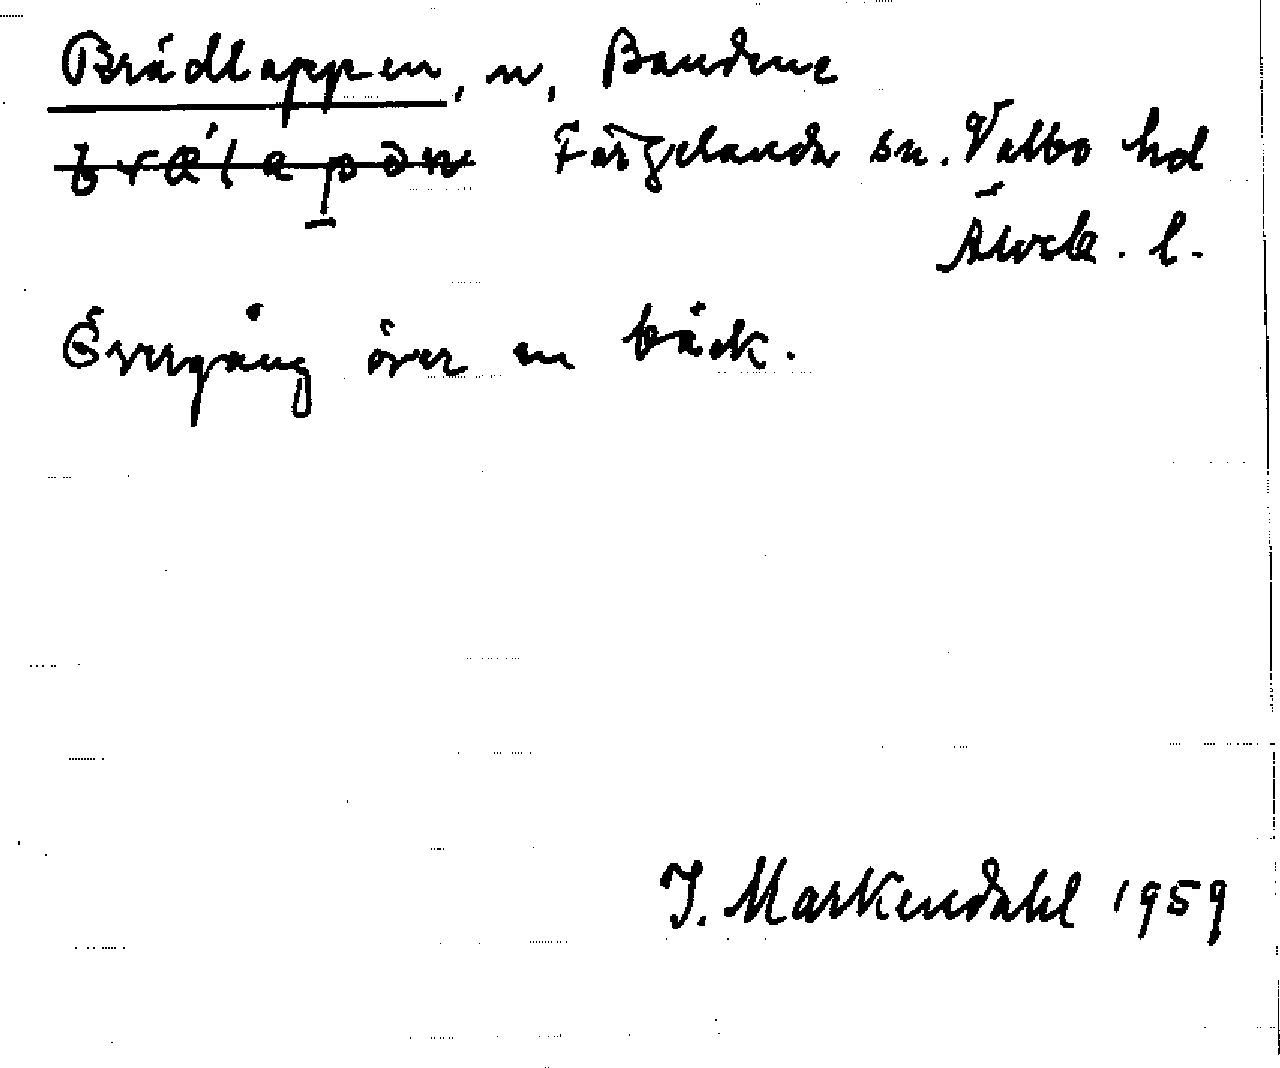 Brädlappen, n, Baudene
brǽlapən Färgelanda sn. Valbo hd
Älvsb. l.
Övergång över en bäck.
J. Markendahl 1959